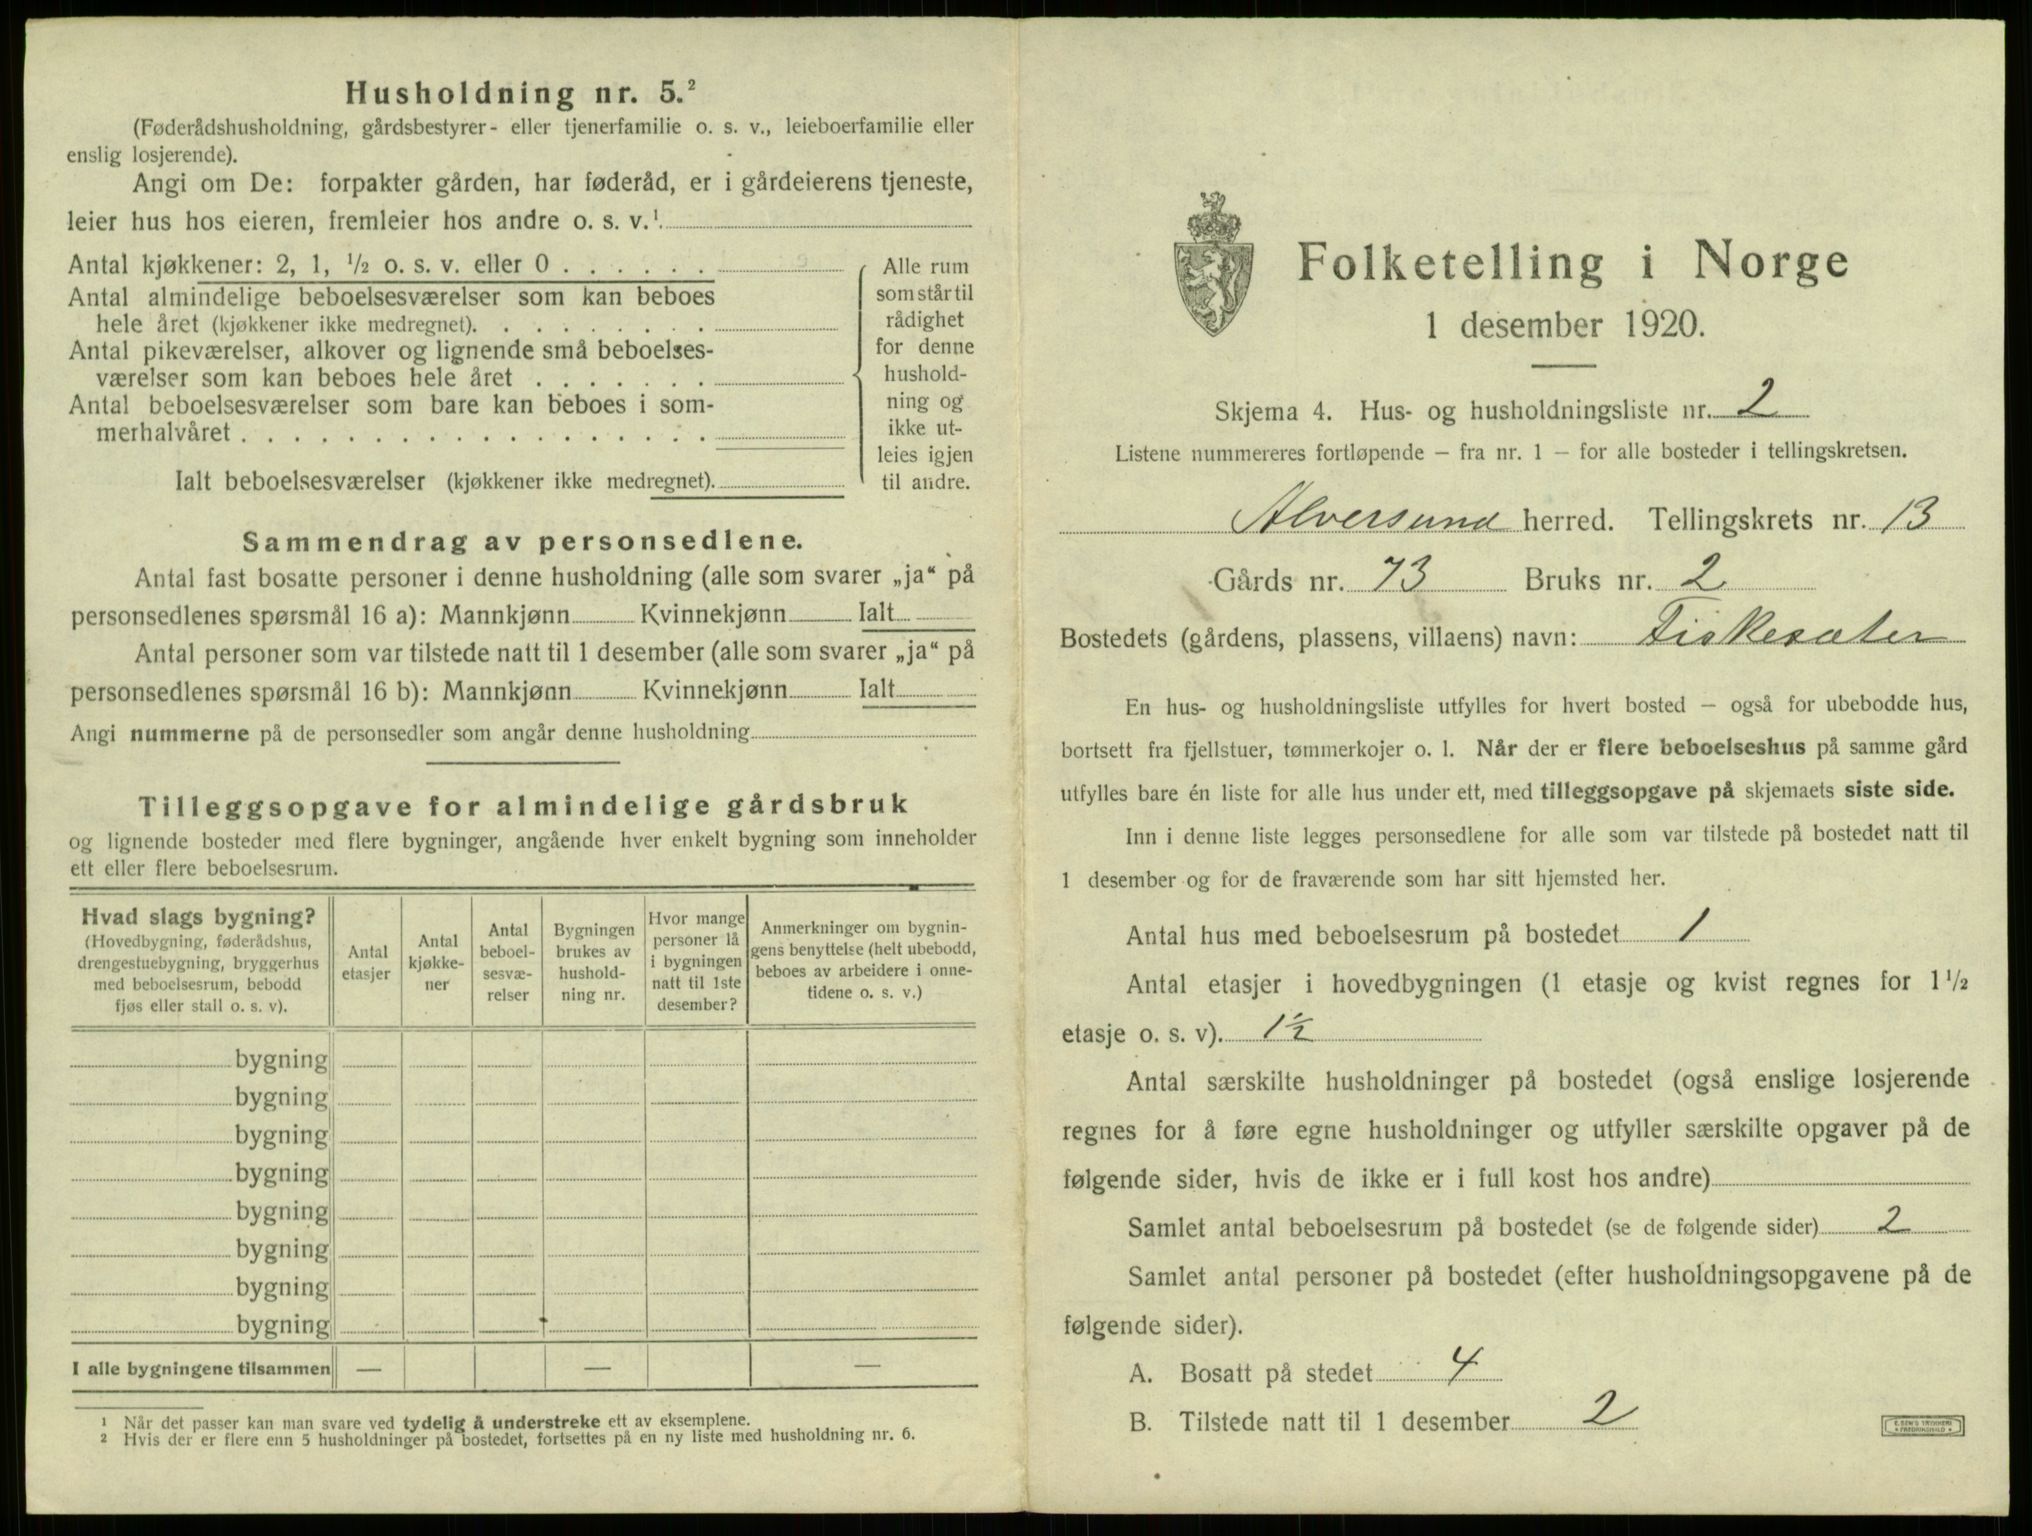 Husholdning nr. 5.²
(Føderådshusholdning, gårdsbestyrer- eller tjenerfamilie o. s. v., leieboerfamilie eller
enslig losjerende).
Angi om De: forpakter gården, har føderåd, er i gårdeierens tjeneste,
leier hus hos eieren, fremleier hos andre o. s. v.¹
Antal kjøkkener: 2, 1, ½ o. s. v. eller 0
Antal almindelige beboelsesværelser som kan beboes
hele året (kjøkkener ikke medregnet).
Antal pikeværelser, alkover og lignende små beboelses-
værelser som kan beboes hele året
Antal beboelsesværelser som bare kan beboes i som-
merhalvåret
Ialt beboelsesværelser (kjøkkener ikke medregnet).
Alle rum
som står til
rådighet
for denne
hushold-
ning og
ikke ut-
leies igjen
til andre.
Sammendrag av personsedlene.
Antal fast bosatte personer i denne husholdning (alle som svarer „ja“ på
personsedlenes spørsmål 16 a): Mannkjønn Kvinnekjønn Ialt
Antal personer som var tilstede natt til 1 desember (alle som svarer „ja“ på
personsedlenes spørsmål 16 b): Mannkjønn Kvinnekjønn Ialt
Angi nummerne på de personsedler som angår denne husholdning
Tilleggsopgave for almindelige gårdsbruk
og lignende bosteder med flere bygninger, angående hver enkelt bygning som inneholder
ett eller flere beboelsesrum.
Hvad slags bygning?
(Hovedbygning, føderådshus,
drengestuebygning, bryggerhus
med beboelsesrum, bebodd
fjøs eller stall o. s. v).
Antal
etasjer
Antal
kjøkke-
ner
Antal
beboel-
sesvæ-
relser
Bygningen
brukes av
hushold-
ning nr.
Hvor mange
personer lå
i bygningen
natt til 1ste
desember?
Anmerkninger om bygnin-
gens benyttelse (helt ubebodd,
beboes av arbeidere i onne-
tidene o. s. v.)
bygning
bygning
bygning
bygning
bygning
bygning
bygning
bygning
I alle bygningene tilsammen — — —
¹ Når det passer kan man svare ved tydelig å understreke ett av eksemplene.
² Hvis der er flere enn 5 husholdninger på bostedet, fortsettes på en ny liste med husholdning nr. 6.
Folketelling i Norge
1 desember 1920.
Skjema 4. Hus- og husholdningsliste nr. 2
Listene nummereres fortløpende – fra nr. 1 – for alle bosteder i tellingskretsen.
Alversund herred. Tellingskrets nr. 13
Gårds nr. 73 Bruks nr. 2
Bostedets (gårdens, plassens, villaens) navn: Fiskesæter
En hus- og husholdningsliste utfylles for hvert bosted – også for ubebodde hus,
bortsett fra fjellstuer, tømmerkojer o. l. Når der er flere beboelseshus på samme gård
utfylles bare én liste for alle hus under ett, med tilleggsopgave på skjemaets siste side.
Inn i denne liste legges personsedlene for alle som var tilstede på bostedet natt til
1 desember og for de fraværende som har sitt hjemsted her.
Antal hus med beboelsesrum på bostedet 1
Antal etasjer i hovedbygningen (1 etasje og kvist regnes for 1 ½
etasje o. s. v). 1½
Antal særskilte husholdninger på bostedet (også enslige losjerende
regnes for å føre egne husholdninger og utfyller særskilte opgaver på de
følgende sider, hvis de ikke er i full kost hos andre)
Samlet antal beboelsesrum på bostedet (se de følgende sider) 2
Samlet antal personer på bostedet (efter husholdningsopgavene på de
følgende sider).
A. Bosatt på stedet 4
B. Tilstede natt til 1 desember 2